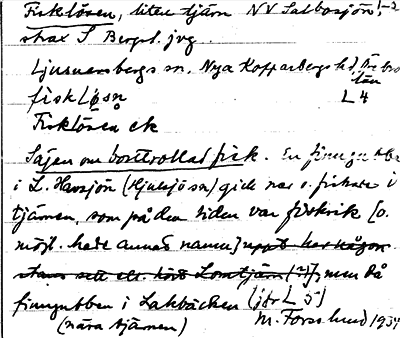 Fisklösen, liten tjärn NV Salbosjön,
strax S Bergsl. jvg.
Ljusnarsbergs sn. Nya Kopparbergs hd, Örebro
län
fiskløsn L 4
Fisklösen ek
Sägen om borttrollad fisk. En finngubbe
i L. Havsjön (Hjulsjö sn) gick ner o. fiskade i
tjärnen, som på den tiden var fiskrik [o.
möjl. hade annat namn] uppt har någon
sett el. hört Lomtjärn (?)], men då
finngubben i Lakbäcken (jfr L 5)
(nära tjärnen) M. Forslund 1934